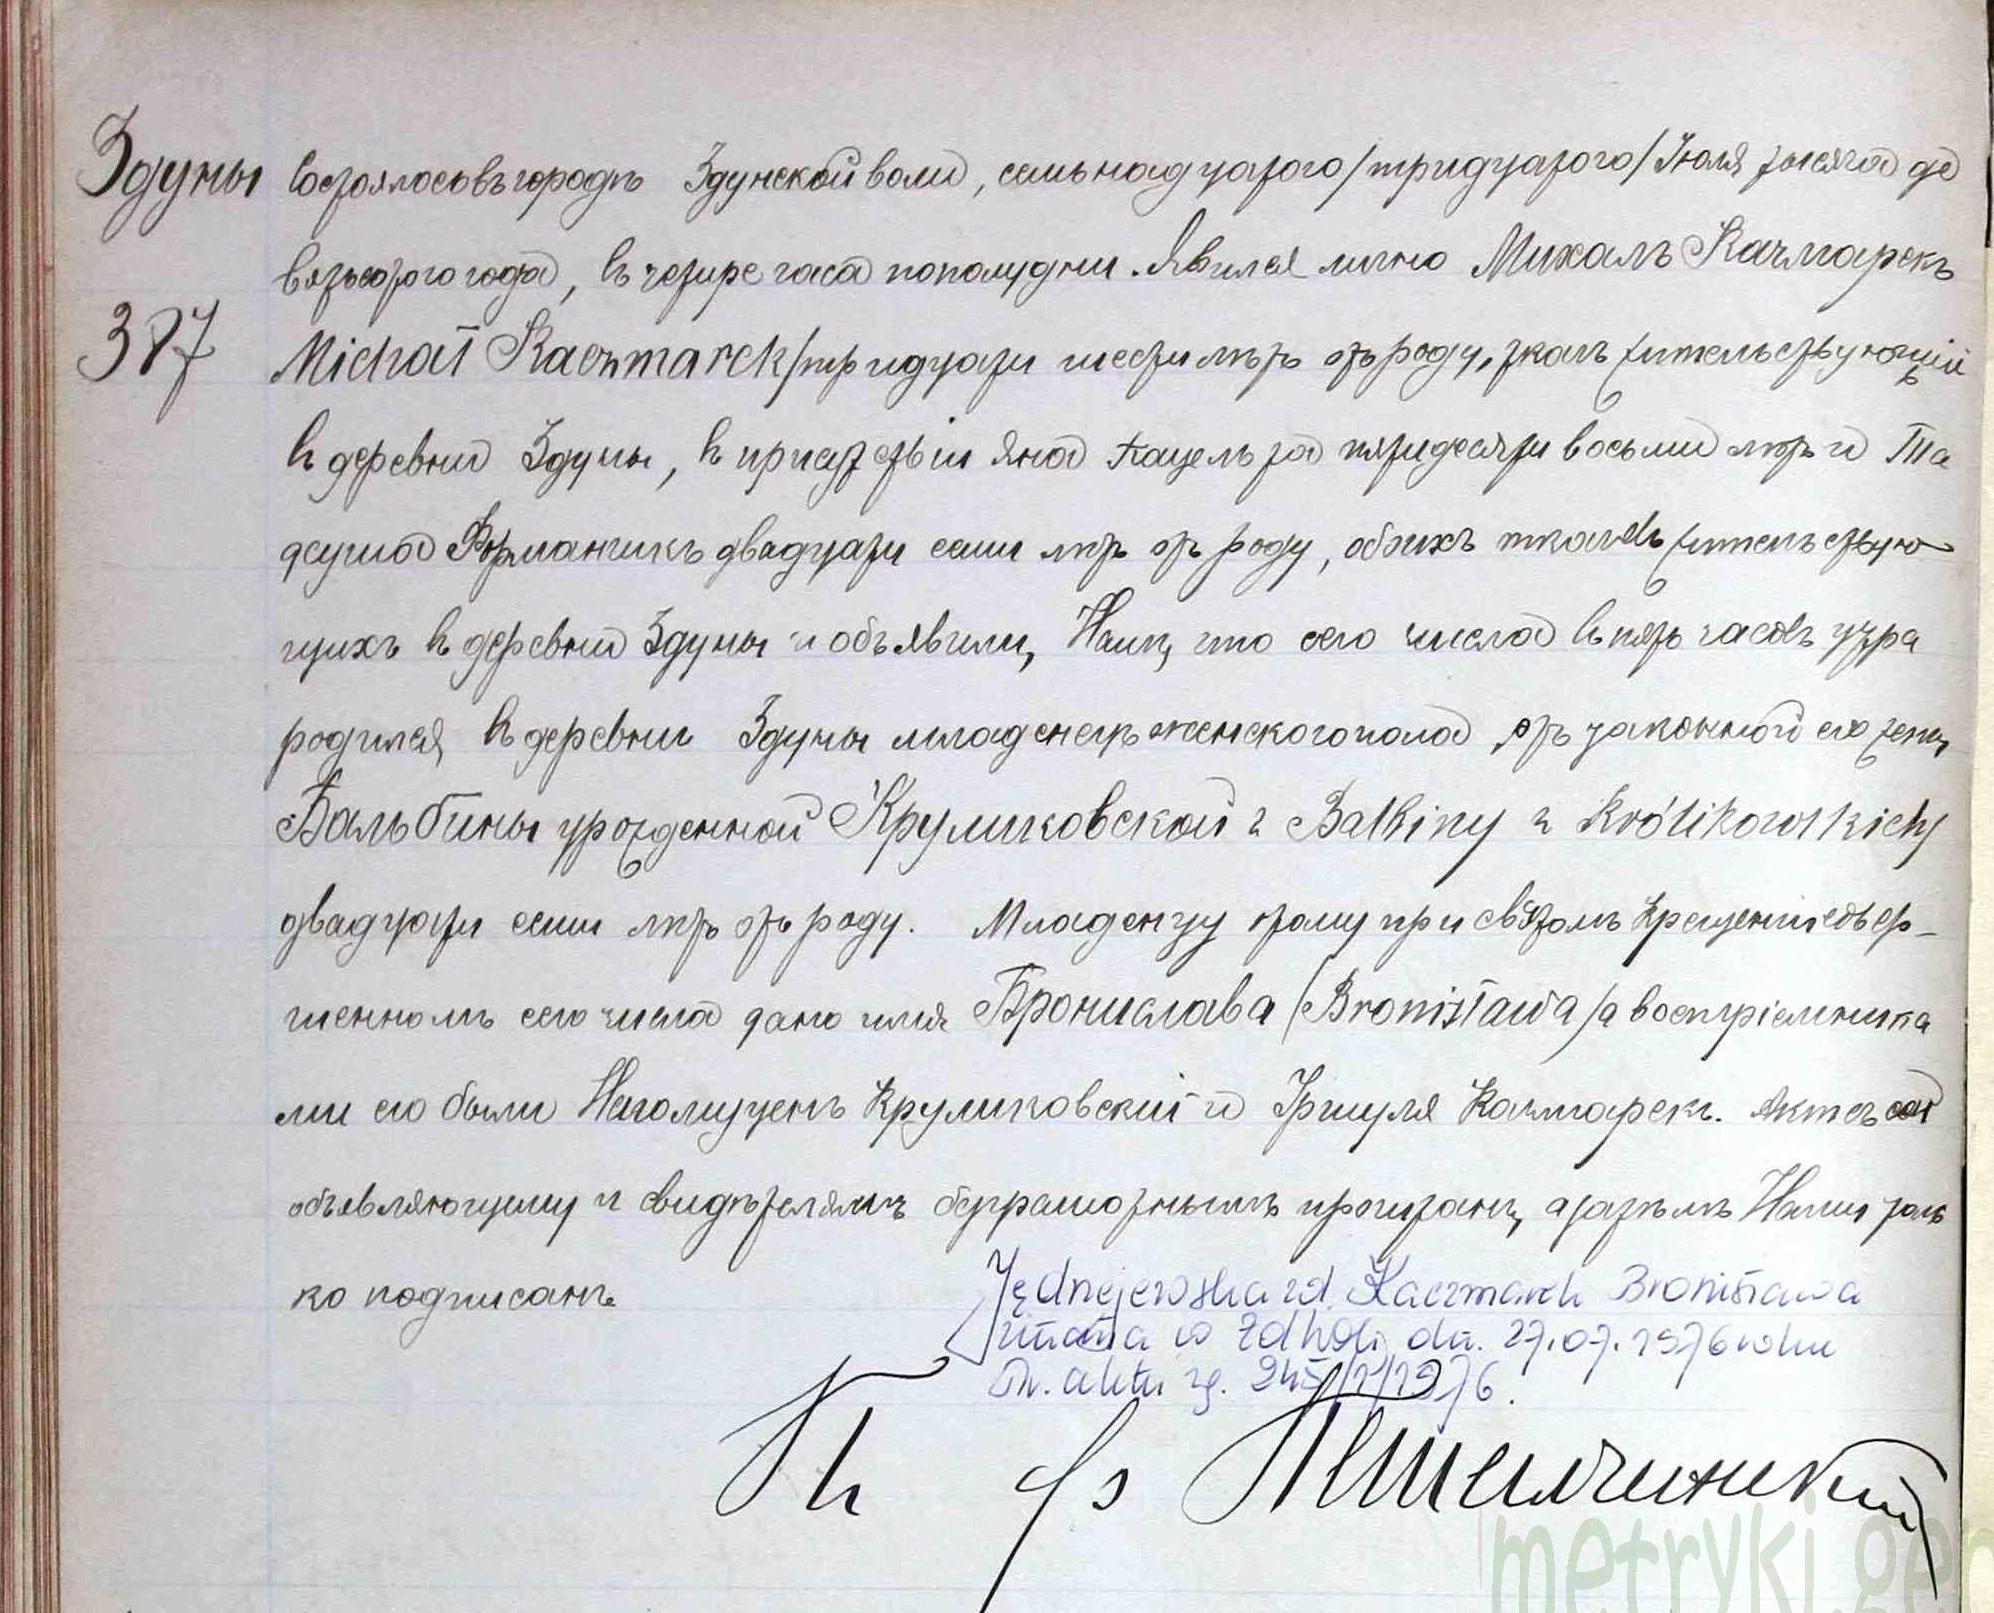 Здуны
387
Состоялось въ городѣ Здунской воли, семьнадцатого /тридцатого/ Iюля тысяча де
вятьсотого года, въ четире часа пополудни. Явился лично Михалъ Качмарекъ
Michał Kaczmarek/ тридцати шести лѣтъ отъ роду, ткачъ жительствующій
въ деревни Здуны, въ присутствіи Яна пятидесяти восьми лѣтъ и Та
деуша двадцати семи лѣтъ отъ роду, обоихъ ткачовъ жительствую
щихъ въ деревни Здуны и объявили Намъ, что сего числа въ пять часовъ утра
родился въ деревни Здуны младенецъ женского пола отъ законной его жены
Бальбины урожденной Круликовской z Balbiny z Królikowskich/
двадцати семи лѣтъ отъ роду. Младенцу тому при святомъ крещеніи совер-
шенномъ сего числа дано имя Бронислава /Bronisława/ а воспріемника
ми его были Круликовскій и Уршуля Качмарекъ. Актъ сей
объявляющему и свидѣтелямъ безграмотнымъ прочитанъ, а затѣмъ Нами толь
ко подписанъ.
Kaczmarek Bronisława
zmarła w Zd Woli dn. 27.07.1976 roku
Nr. aktu zg. 245/1/1976.